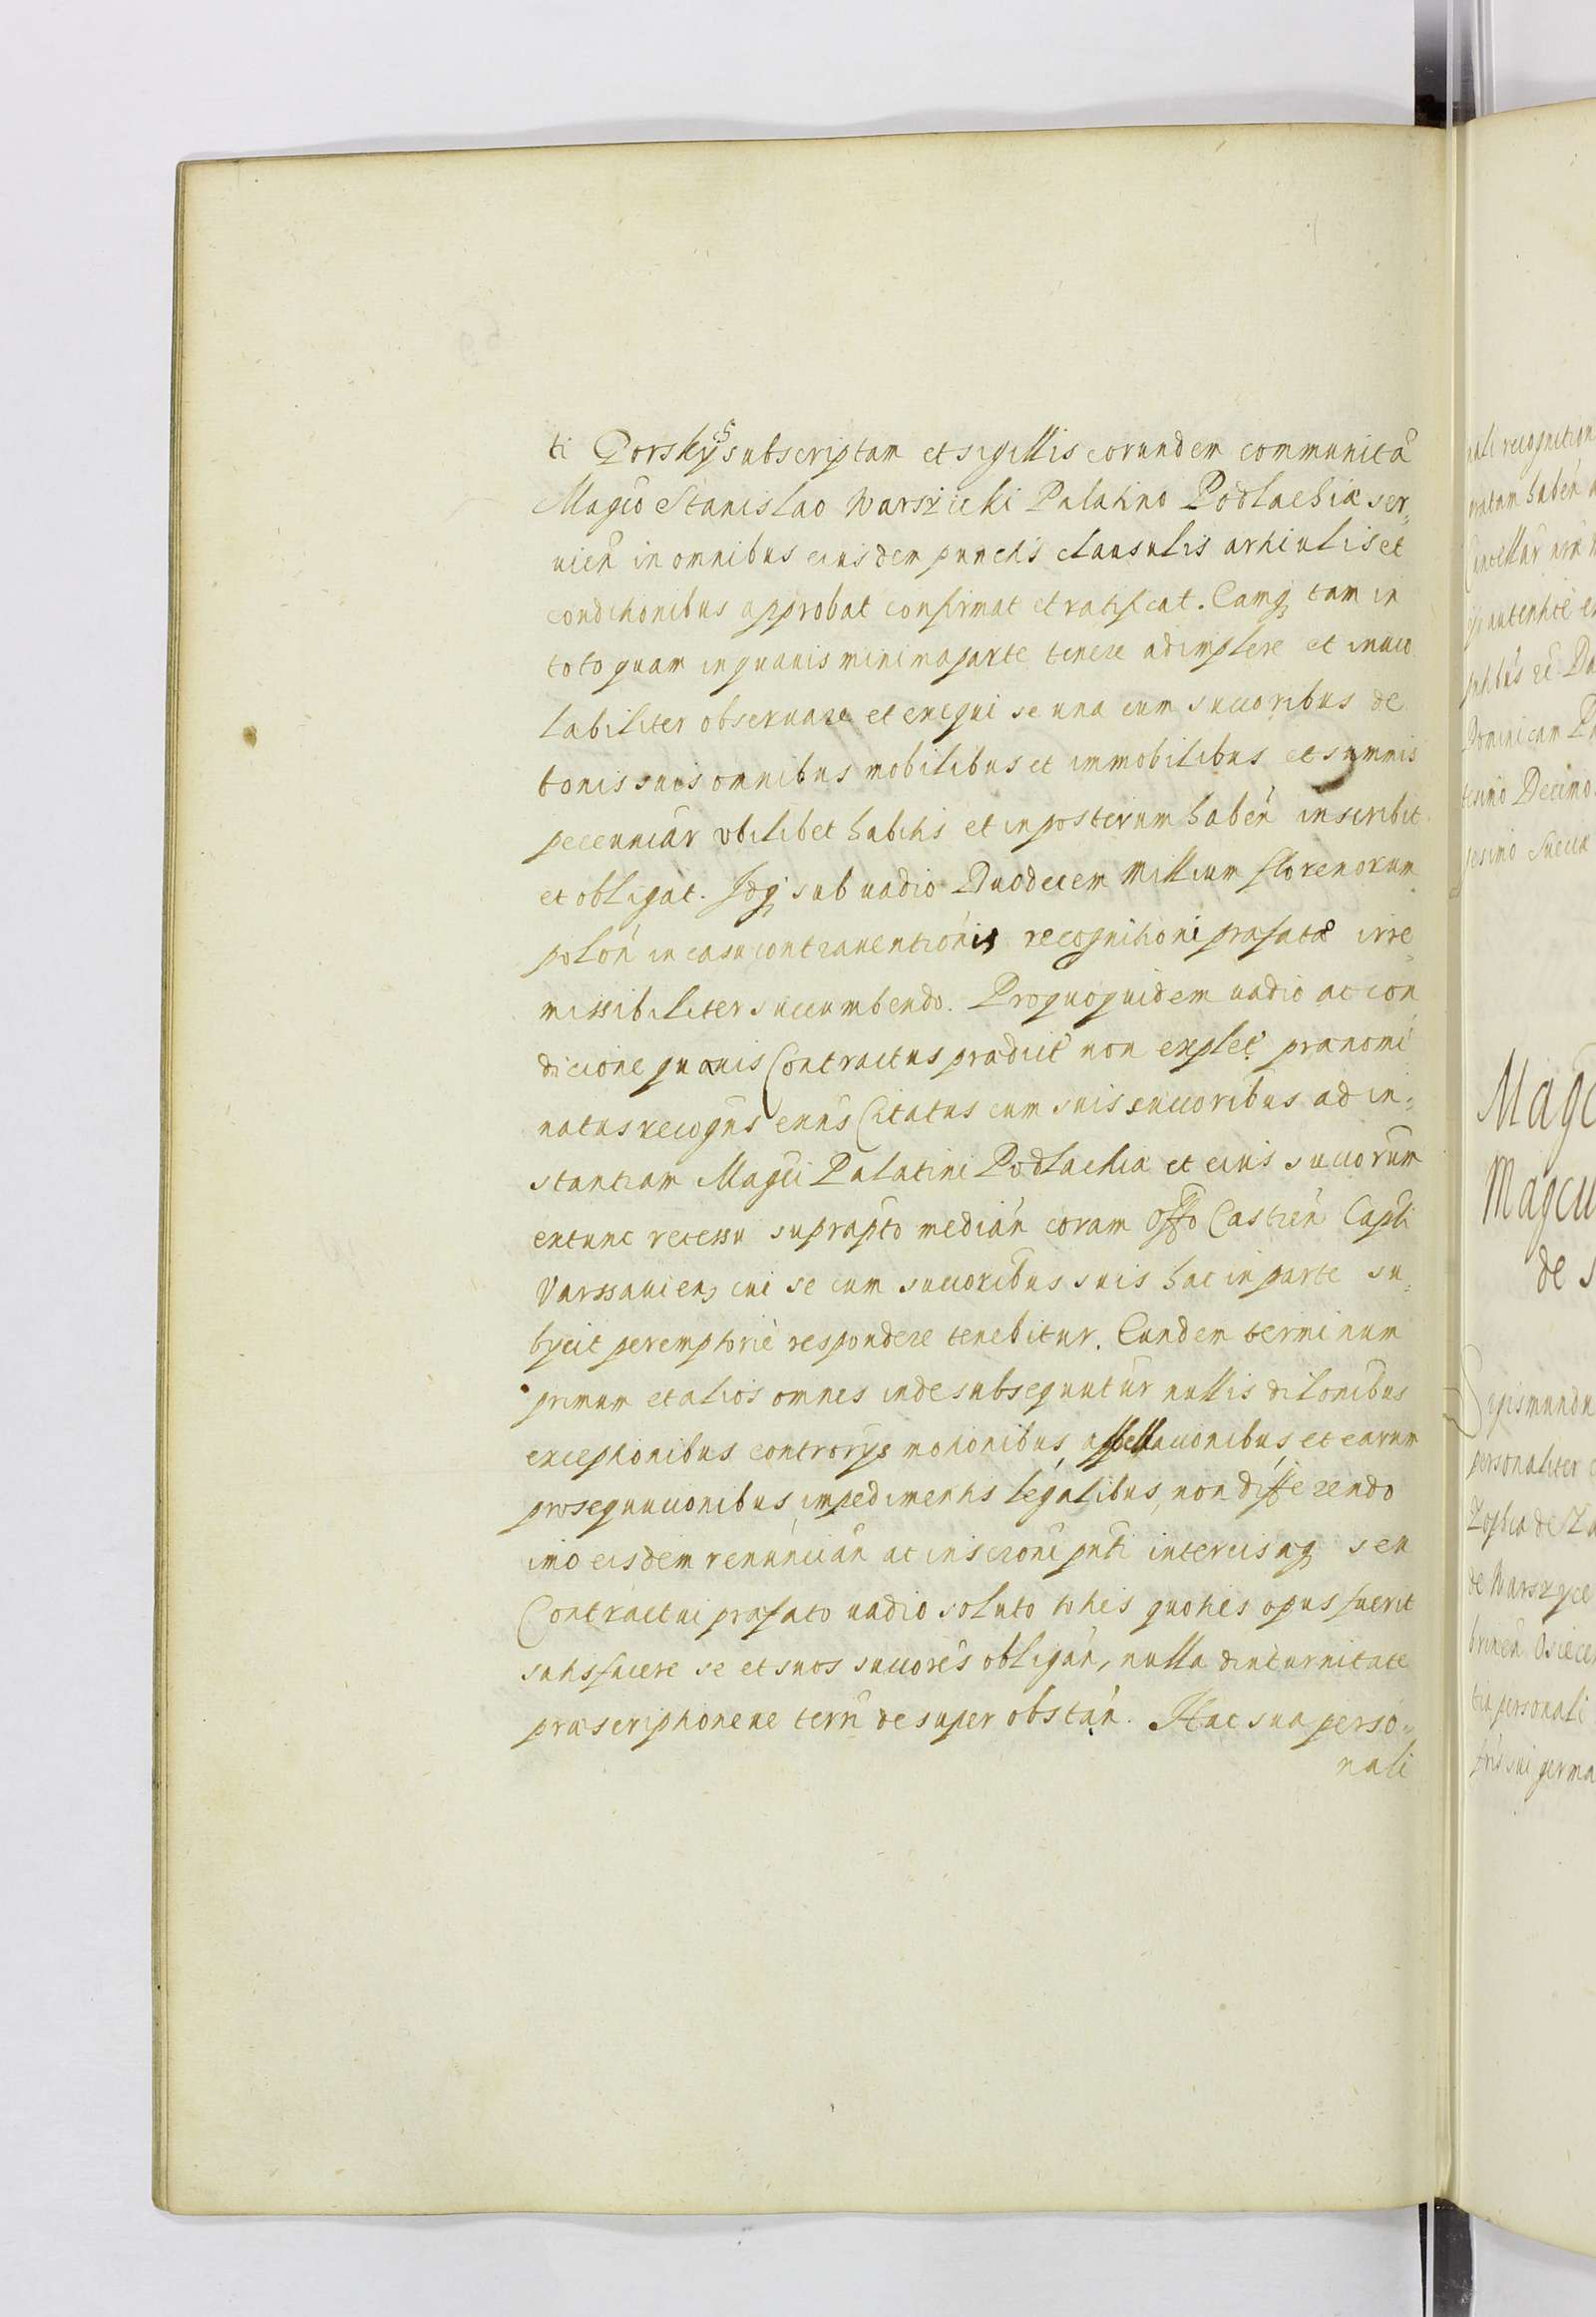 ti Gorskÿs subscriptam et sigillis eorundem communitã
Magco Stanislao Warszicki Palatino Podlachiæ ser„
uien̄ in omnibus eiusdem punctis clausulis articulis et
conditionibus approbat confirmat et ratificat. Eamq́ tam in
toto quam in quauis minima parte tenere adimplere et inuio
labiliter obseruare et exequi se una cum succoribus de
bonis suis omnibus mobilibus et immobilibus et summis
pecenniar̄ vbilibet habitis et in posterum habeń inscribit
et obligat. Idq́ sub uadio Duodecem Millium florenorum
poloń in casu contrauentionis recognitioni præfatæ irre„
missibiliter succumbendo. Pro quo quidem uadio ac con
dicione quauis Contractus prædict̄ non explet̄ prænomi
natus recogns̄ exns̄ Citatus cum suis succoribus ad in„
stantiam Magci Palatini Podlachiæ et eius succorum
extunc recessu suprapto mediań coram Offo Castreń Capli
Varssauień cui se cum succoribus suis hac in parte su„
bycit peremptorie respondere tenebitur. Eundem terminum
primum et alios omnes inde subsequutur̄ nullis dilonibus
exceptionibus controrys motionibus, appellacionibus, et earum
prosequucionibus impedimentis legalibus, non differendo
imo eisdem renunciań ac inscroni pnti intercisæq́ seu
Contractui præfato uadio soluto toties quoties opus fuerit
satisfacere se et suos succores obligań, nulla diuturnitate
præscriptioneue terr̄ desuper obstań. Hac sua perso„
nali